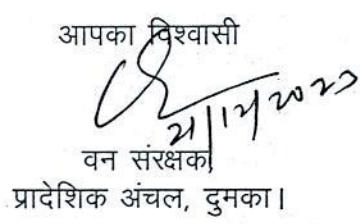 आपका विश्वासी
21/12/2023
वन संरक्षक,
प्रादेशिक अंचल, दुमका।